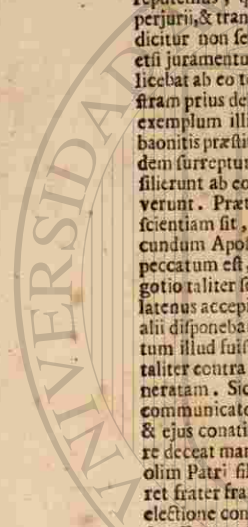 reputemus, q
perjurii, & tran
dicitur non ſe
etſi juramentu
licebat ab eo t
ſtram prius de
exemplum illi
baonitis præſti
dem ſurreptur
ſilierunt ab eo
verunt. Præt
ſcientiam ſit,
cundum Apoſ
peccatum eſt,
gotio taliter ſ
latenus accepi
alii diſponeba
tum illud fuiſ
taliter contra
neratam. Sic
communicato
& ejus conati
re deceat man
olim Patri fil
ret frater fra
electione con
VERSIDAD